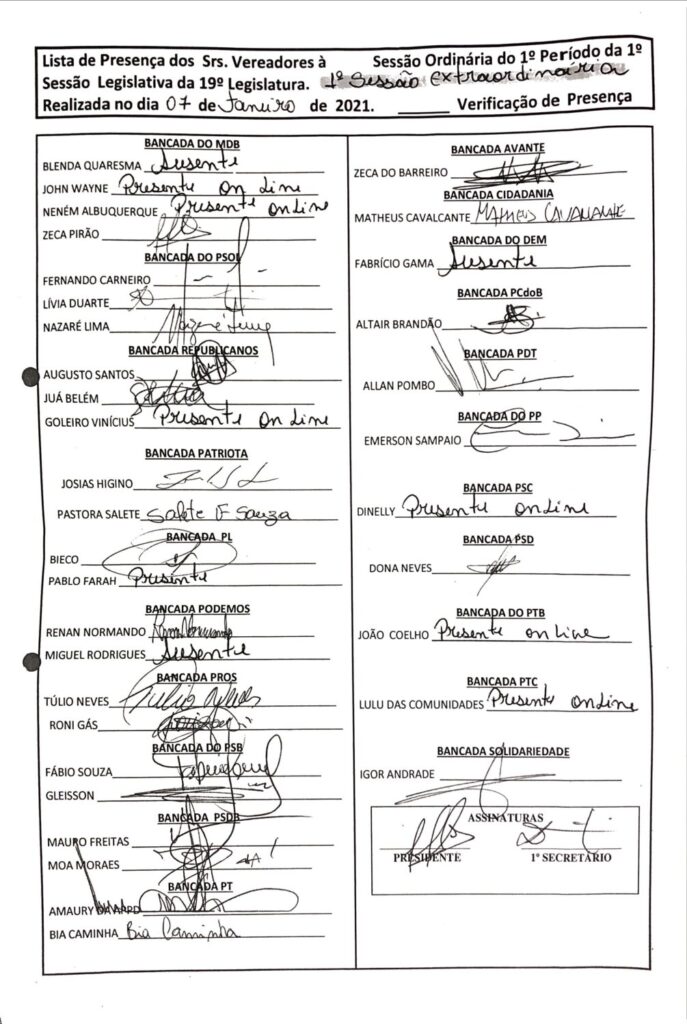 Lista de Presença dos Srs. Vereadores à Sessão Ordinária do 1º Período da 1º
Sessão Legislativa da 19º Legislatura. 1ª Sessão Extraordinária
Realizada no dia 07 de Janeiro de 2021. ______ Verificação de Presença
BANCADA DO MDB
BLENDA QUARESMA Ausente
JOHN WAYNE Presente on line
NENÉM ALBUQUERQUE Presente online
ZECA PIRÃO
BANCADA DO PSOL
FERNANDO CARNEIRO
LÍVIA DUARTE
NAZARÉ LIMA Nazaré Lima
BANCADA REPUBLICANOS
AUGUSTO SANTOS
JUÁ BELÉM
GOLEIRO VINÍCIUS Presente on line
BANCADA PATRIOTA
JOSIAS HIGINO
PASTORA SALETE Salete F Souza
BANCADA PL
BIECO
PABLO FARAH Presente
BANCADA PODEMOS
RENAN NORMANDO Renan Normando
MIGUEL RODRIGUES Ausente
BANCADA PROS
TÚLIO NEVES Túlio Neves
RONI GÁS
BANCADA DO PSB
FÁBIO SOUZA
GLEISSON
BANCADA PSDB
MAURO FREITAS
MOA MORAES
BANCADA PT
AMAURY DA APPD
BIA CAMINHA Bia Caminha
BANCADA AVANTE
ZECA DO BARREIRO
BANCADA CIDADANIA
MATHEUS CAVALCANTE MATHEUS CAVALCANTE
BANCADA DO DEM
FABRÍCIO GAMA Ausente
BANCADA PCdoB
ALTAIR BRANDÃO
BANCADA PDT
ALLAN POMBO
BANCADA DO PP
EMERSON SAMPAIO
BANCADA PSC
DINELLY Presente online
BANCADA PSD
DONA NEVES
BANCADA DO PTB
JOÃO COELHO Presente on line
BANCADA PTC
LULU DAS COMUNIDADES Presente online
BANCADA SOLIDARIEDADE
IGOR ANDRADE
ASSINATURAS
PRESIDENTE 1º SECRETÁRIO